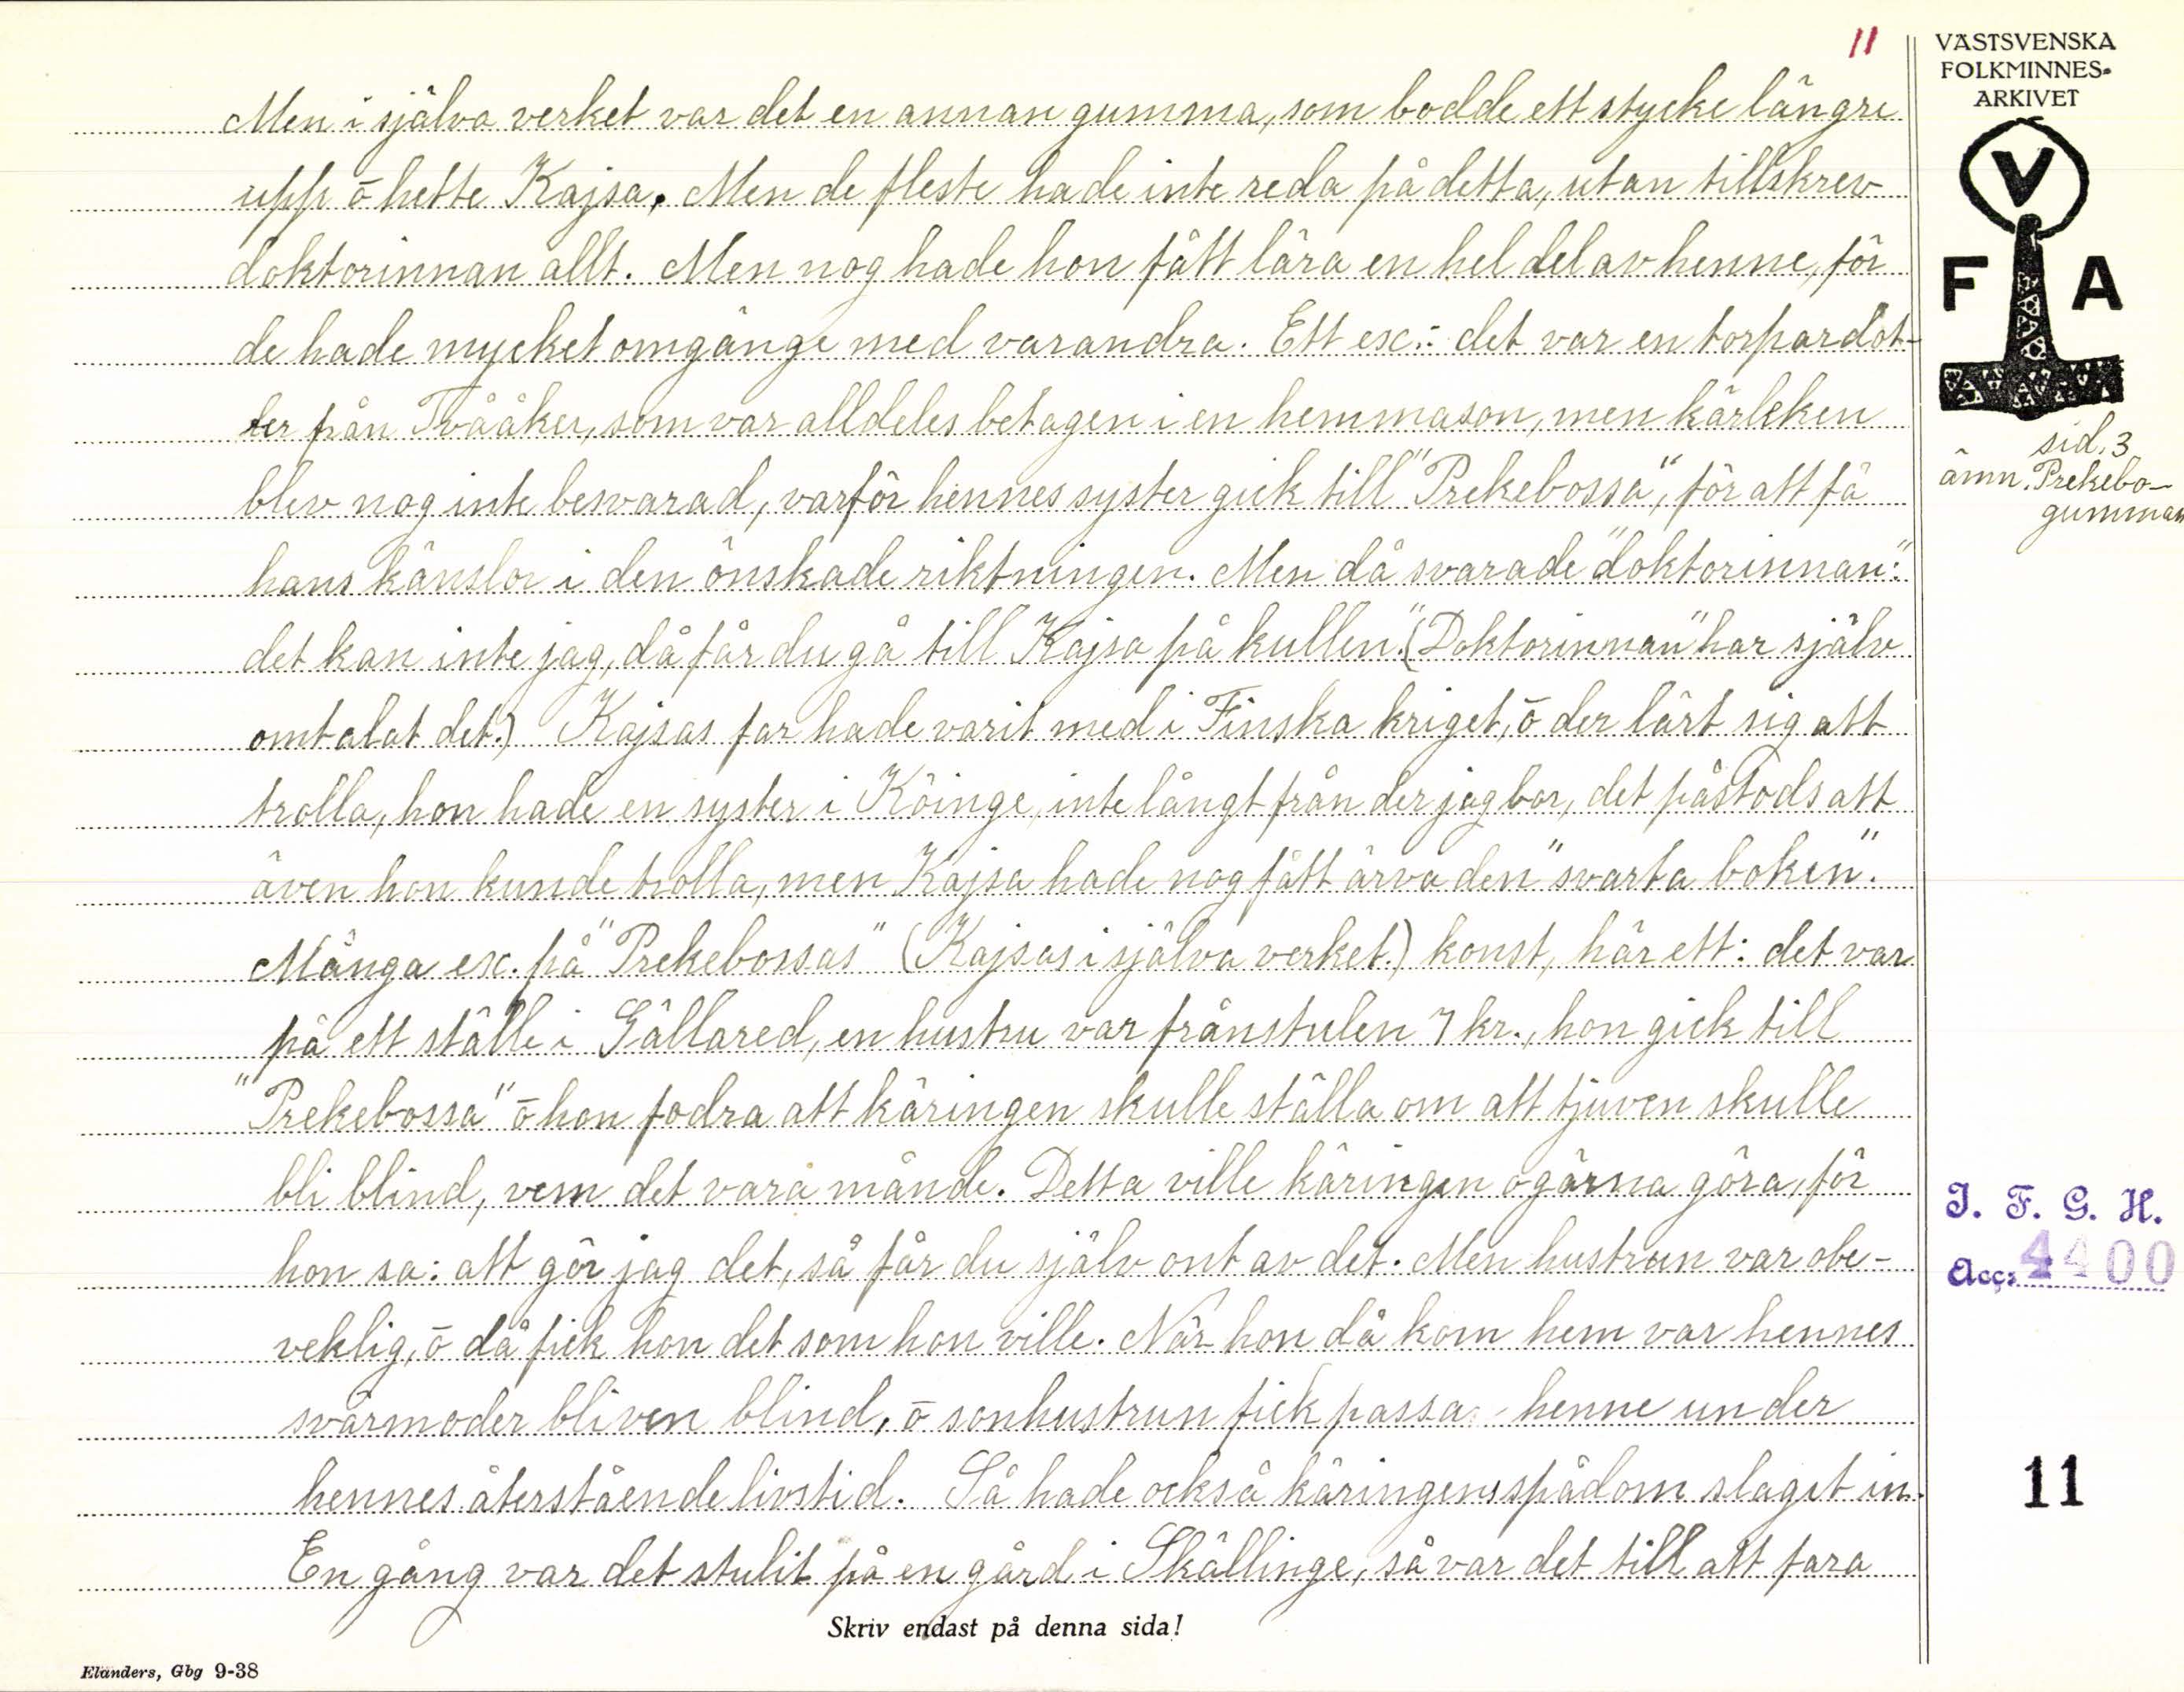 11
Men i själva verket var det en annan gumma, som bodde ett stycke längre
upp ō hette Kajsa. Men de fleste hade inte reda på detta, utan tillskrev
doktorinnan allt. Men nog hade hon fått lära en hel del av henne, för
de hade mycket omgänge med varandra. Ett ex:- det var en torpardot-
ter från Tvååker, som var alldeles betagen i en hemmason, men kärleken
blev nog inte besvarad, varför hennes syster gick till "Prekebossa", för att få
hans känslor i den önskade riktningen. Men då svarade "doktorinnan":
det kan inte jag, då får du gå till Kajsa på kullen." (Doktorinnan" har själv
omtalat det.) Kajsas far hade varit med i Finska kriget, ō der lärt sig att
trolla, hon hade en syster i Köinge, inte långt från der jag bor, det påstods att
även hon kunde trolla, men Kajsa hade nog fått ärva den "svarta boken".
Många ex. på "Prekebossas" (Kajsas i själva verket.) konst, här ett: det var
på ett ställe i Gällared, en hustru var frånstulen 7 kr., hon gick till
"Prekebossa" ō hon fodra att käringen skulle ställa om att tjuven skulle
bli blind, vem det vara månde. Detta ville käringen ogärna göra, för
hon sa: att gör jag det, så får du själv ont av det. Men hustrun var obe-
veklig, ō då fick hon det som hon ville. När hon då kom hem var hennes
svärmoder bliven blind, ō sonhustrun fick passa henne under
hennes återstående livstid. Så hade också käringens spådom slagit in.
En gång var det stulit på en gård i Skällinge, så var det till att fara
Skriv endast på denna sida!
Elanders, Gbg 9-38
VÄSTSVENSKA
FOLKMINNES-
ARKIVET
V
F A
sid. 3
ämn. Prekebo-
gumman
I. F. G. H.
Acc: 4400
11